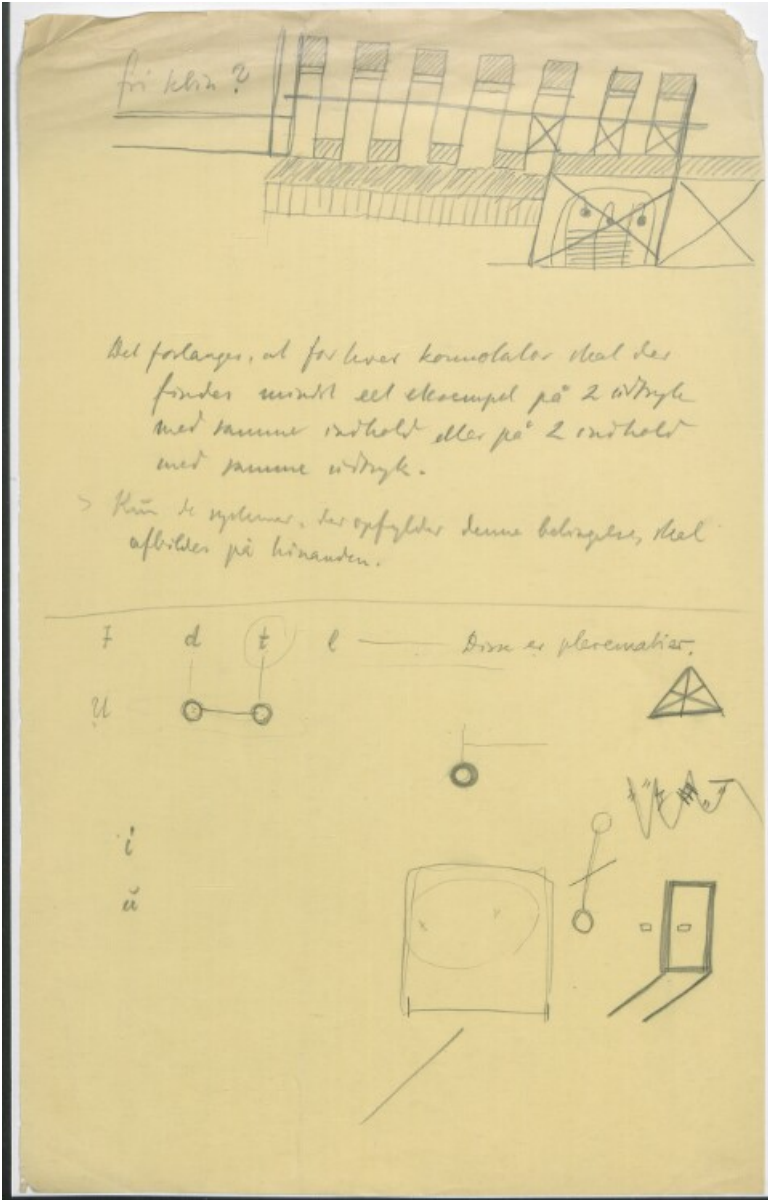 fri klin?
Det forlanges, at for hver konnotator skal der
findes mindst eet eksempel på 2 udtryk
med samme indhold eller på 2 indhold
med samme udtryk.
> Kun de systemer, der opfylder denne betingelse, skal
afbildes på hinanden.
d t l Disse er plerematier.
U
i
u